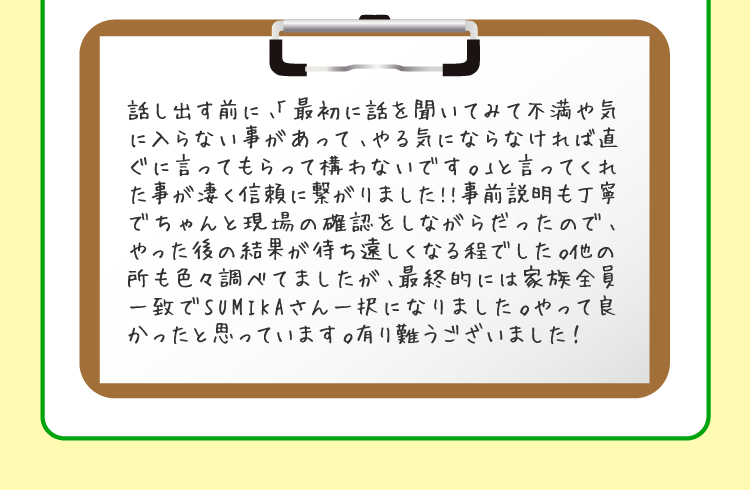 話し出す前に、「最初に話を聞いてみて不満や気
に入らない事があって、やる気にならなければ直
ぐに言ってもらって構わないです。」と言ってくれ
た事が凄く信頼に繋がりました!!事前説明も丁寧
でちゃんと現場の確認をしながらだったので、
やった後の結果が待ち遠しくなる程でした。他の
所も色々調べてましたが、最終的には家族全員
一致でSUMIKAさん一択になりました。やって良
かったと思っています。有り難うございました!